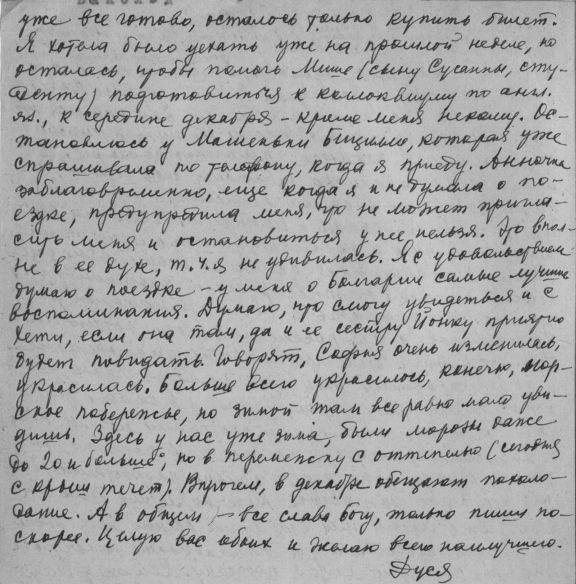 уже все готово, осталось только купить билет.
Я хотела было уехать уже на прошлой неделе, но
осталась, чтобы помочь Мише (сыну Сусанны, сту-
денту) подготовиться к коллоквиуму по англ.
яз., к середине декабря – кроме меня некому. Ос-
тановлюсь у Машеньки Бицилли, которая уже
спрашивала по телефону, когда я приеду. Анночка
заблаговременно, еще когда я и не думала о по-
ездке, предупредила меня, что не может пригла-
сить меня и остановиться у нее нельзя. Это впол-
не в ее духе, т.ч. я не удивилась. Я с удовольствием
думаю о поездке – у меня о Болгарии самые лучшие
воспоминания. Думаю, что смогу увидеться и с
Кети, если она там, да и ее сестру Йонку приятно
будет повидать. Говорят, София очень изменилась,
украсилась. Больше всего украсилось, конечно, мор-
ское побережье, но зимой там все равно мало уви-
дишь. Здесь у нас уже зима, были морозы даже
до 20 и больше°, но в перемежку с оттепелью (сегодня
с крыш течет). Впрочем, в декабре обещают похоло-
дание. А в общем – все слава богу, только пиши по-
скорее. Целую вас обоих и желаю всего наилучшего.
Дуся